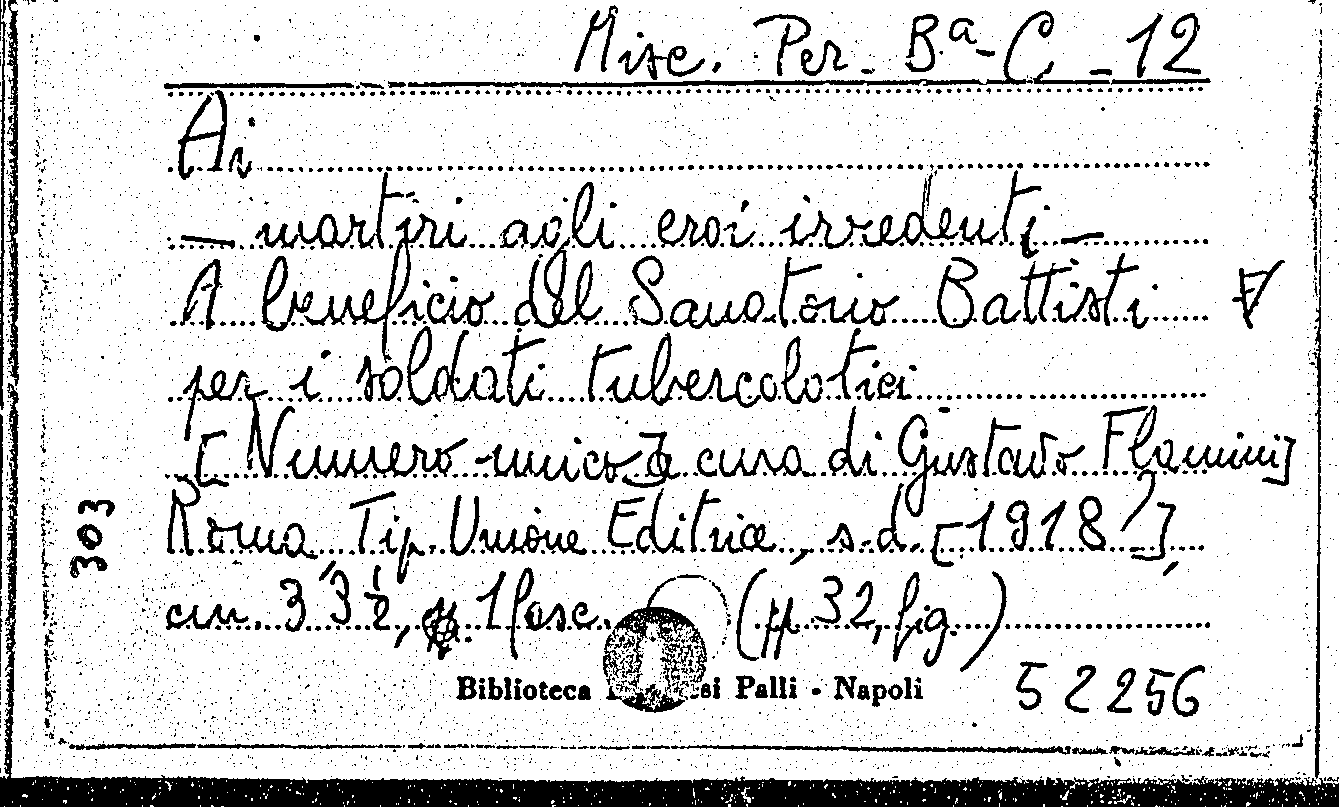 Misc. Per. Bª-C-12
Ai
— martiri agli eroi irredenti —
A beneficio del Sanatorio Battisti
per i soldati tubercolotici
[Numero unico a cura di Gustavo Flamini]
Roma, Tip. Unione Editrice, s.d. [1918?],
cm. 33½, 1 fasc. (pp. 32, fig.)
303
Biblioteca si Palli - Napoli
52256